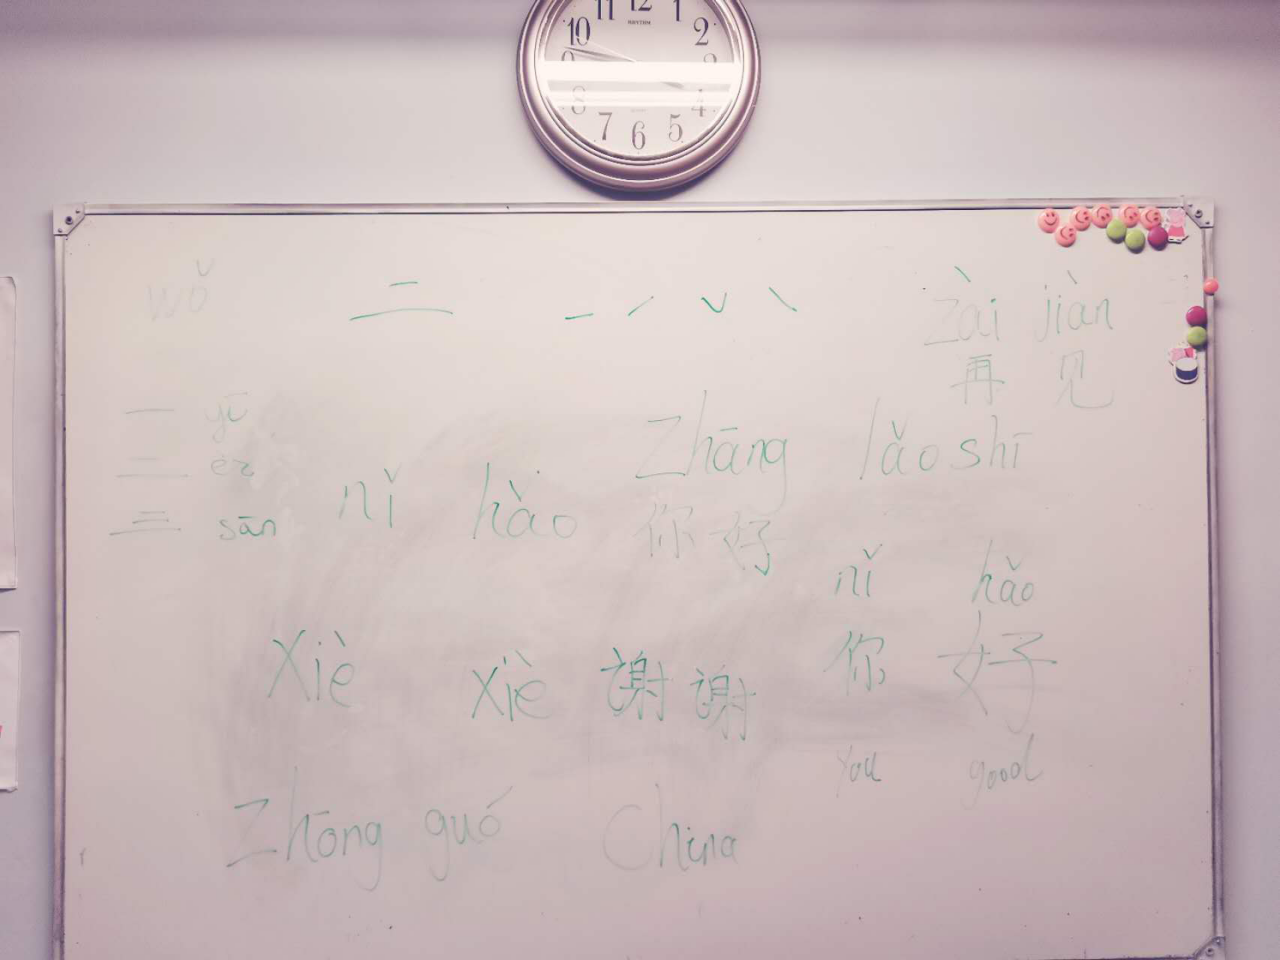 11 12 1
10 2
RHYTHM
9 3
8 4
7 6 5
wǒ
二
zài jiàn
再 见
一 yī
二 èr
三 sān
Zhāng lǎoshī
nǐ hǎo 你好
nǐ hǎo
你 好
you good
Xiè xiè 謝謝
Zhōng guó China